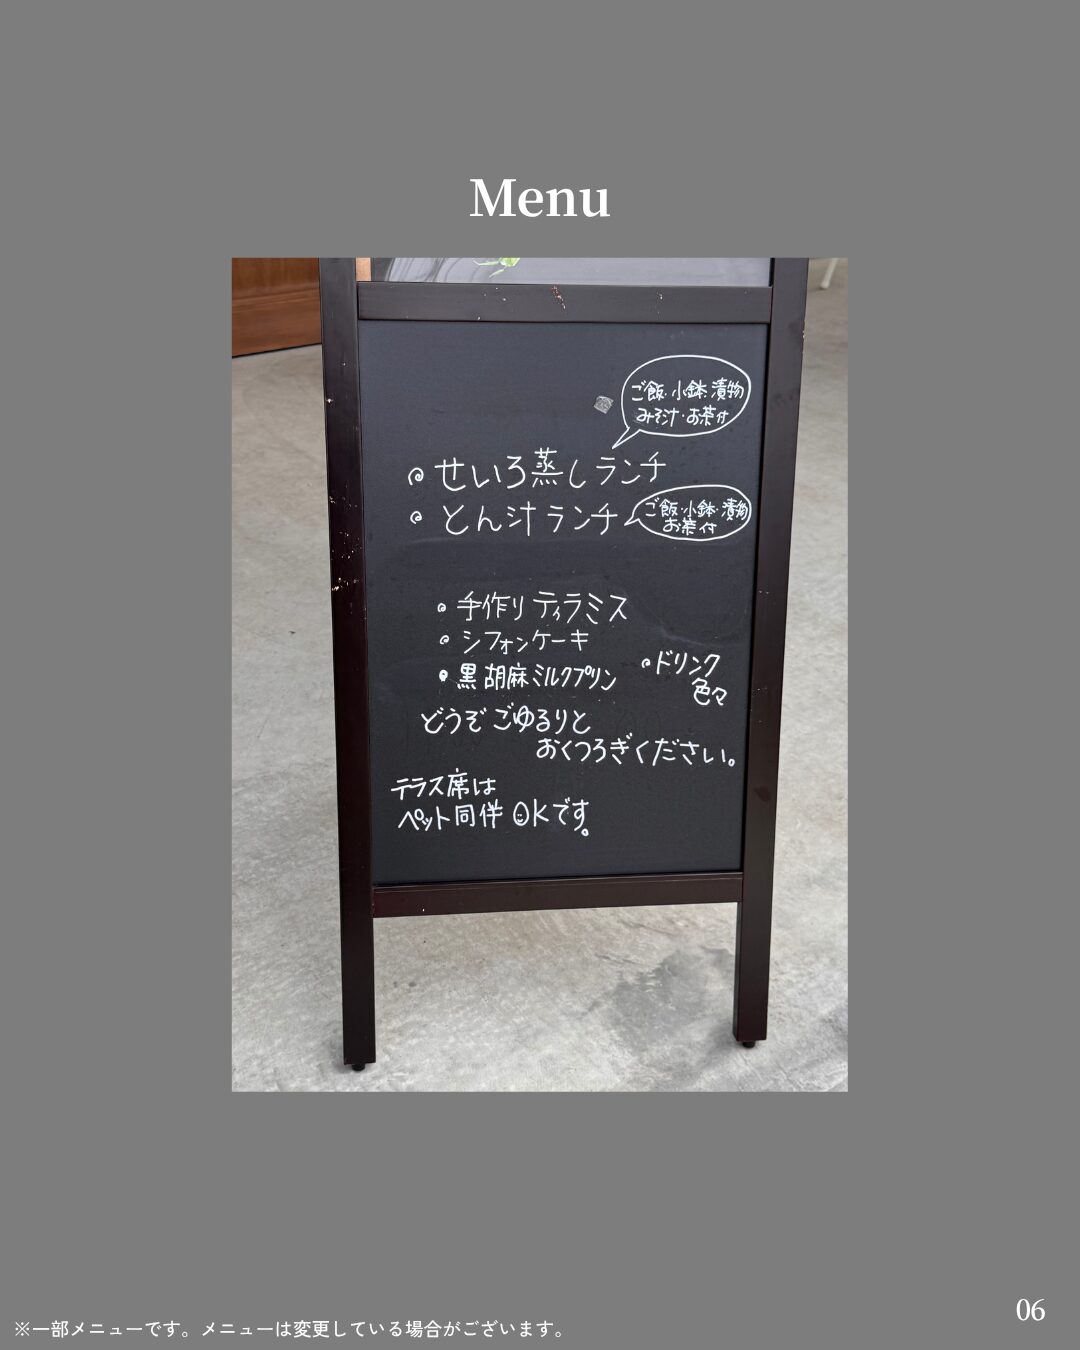 Menu
ご飯・小鉢・漬物
みそ汁・お茶付
せいろ蒸しランチ
とん汁ランチ
ご飯・小鉢・漬物
お茶付
手作りティラミス
シフォンケーキ
黒胡麻ミルクプリン
ドリンク
色々
どうぞごゆるりと
おくつろぎください。
テラス席は
ペット同伴OKです。
06
※一部メニューです。メニューは変更している場合がございます。